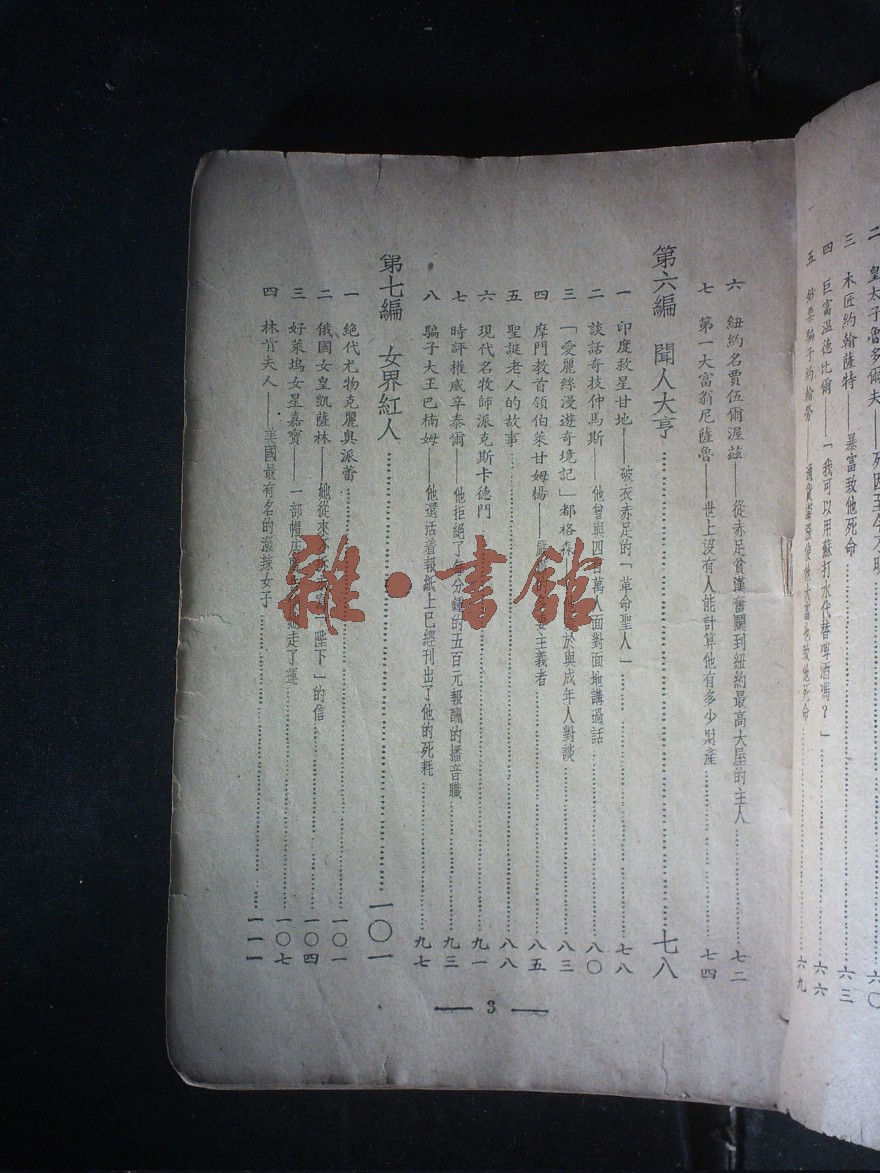 二 皇太子魯多爾夫——死因至今不明……六〇
三 木匠約翰薩特——暴富致他死命……六三
四 巨富溫德比爾——「我可以用蘇打水代替啤酒嗎？」……六六
五 鈔票騙子約翰勞——通貨膨漲使他大富也致他死命……六九
六 紐約名賈伍爾渥玆——從赤足貧漢奮鬭到紐約最高大屋的主人……七二
七 第一大富翁尼薩魯——世上沒有人能計算他有多少財產……七四
第六編 聞人大亨……七八
一 印度救星甘地——破衣赤足的「革命聖人」……七八
二 談話奇技仲馬斯——他曾與四百萬人面對面地講過話……八〇
三 「愛麗絲漫遊奇境記」都格森 於與成年人對談……八三
四 摩門教首領伯萊甘姆楊—— 妻主義者……八五
五 聖誕老人的故事……八八
六 現代名牧師派克斯卡德門……九一
七 時評權威辛泰爾——他拒絕了每分鐘的五百元報酬的播音職……九三
八 騙子大王巴楠姆——他還活着報紙上已經刊出了他的死耗……九七
第七編 女界紅人……一〇一
一 絕代尤物克麗奥派蕾……一〇一
二 俄國女皇凱薩林——她從來 「陛下」的信……一〇四
三 好萊塢女星嘉寶——一部帽店 走了運……一〇七
四 林肯夫人——美國最有名的潑辣女子……一一一
— 3 —
雜·書館